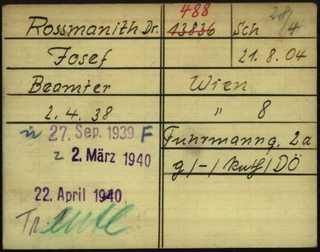 488
Rossmanith Dr. 13836 Sch 28/4
Josef 21. 8. 04
Beamter Wien
2. 4. 38 " 8
ü 27. Sep. 1939 F Fuhrmanng. 2a
z 2. März 1940 g/-/ /DÖ
22. April 1940